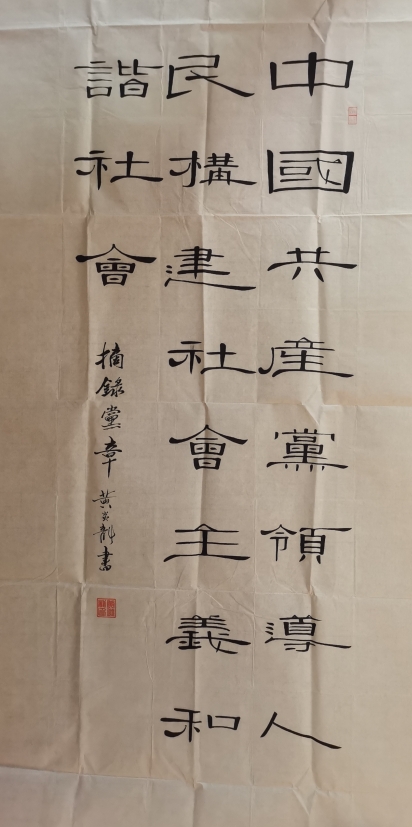 中國共產黨領導人
民構建社會主義和
諧社會
摘錄黨章 黃 書